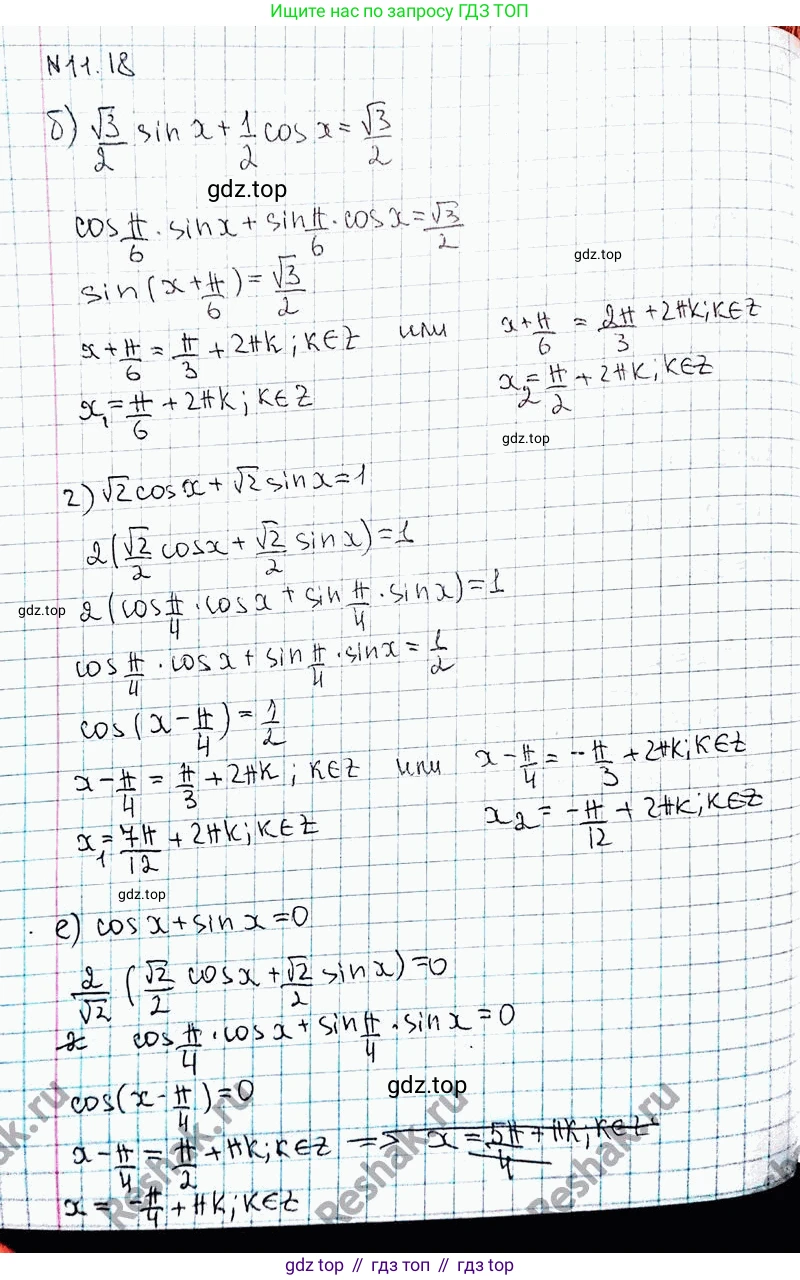 Ищите нас по запросу ГДЗ ТОП
N11.18
б) √3/2 sin x + 1/2 cos x = √3/2
gdz.top
cos π/6 · sin x + sin π/6 · cos x = √3/2
gdz.top
sin(x + π/6) = √3/2
x + π/6 = π/3 + 2πk; k∈Z или x + π/6 = 2π/3 + 2πk; k∈Z
x₁ = π/6 + 2πk; k∈Z x₂ = π/2 + 2πk; k∈Z
gdz.top
г) √2 cos x + √2 sin x = 1
2(√2/2 cos x + √2/2 sin x) = 1
gdz.top
2(cos π/4 · cos x + sin π/4 · sin x) = 1
cos π/4 · cos x + sin π/4 · sin x = 1/2
cos(x − π/4) = 1/2
x − π/4 = π/3 + 2πk; k∈Z или x − π/4 = −π/3 + 2πk; k∈Z
x₁ = 7π/12 + 2πk; k∈Z x₂ = −π/12 + 2πk; k∈Z
gdz.top
е) cos x + sin x = 0
2/√2 (√2/2 cos x + √2/2 sin x) = 0
cos π/4 · cos x + sin π/4 · sin x = 0
gdz.top
cos(x − π/4) = 0
x − π/4 = π/2 + πk; k∈Z => x = 5π/4 + πk; k∈Z
x = −π/4 + πk; k∈Z
Reshak.ru
Reshak.ru
Reshak.ru
Reshak.ru
gdz top // гдз топ // gdz top